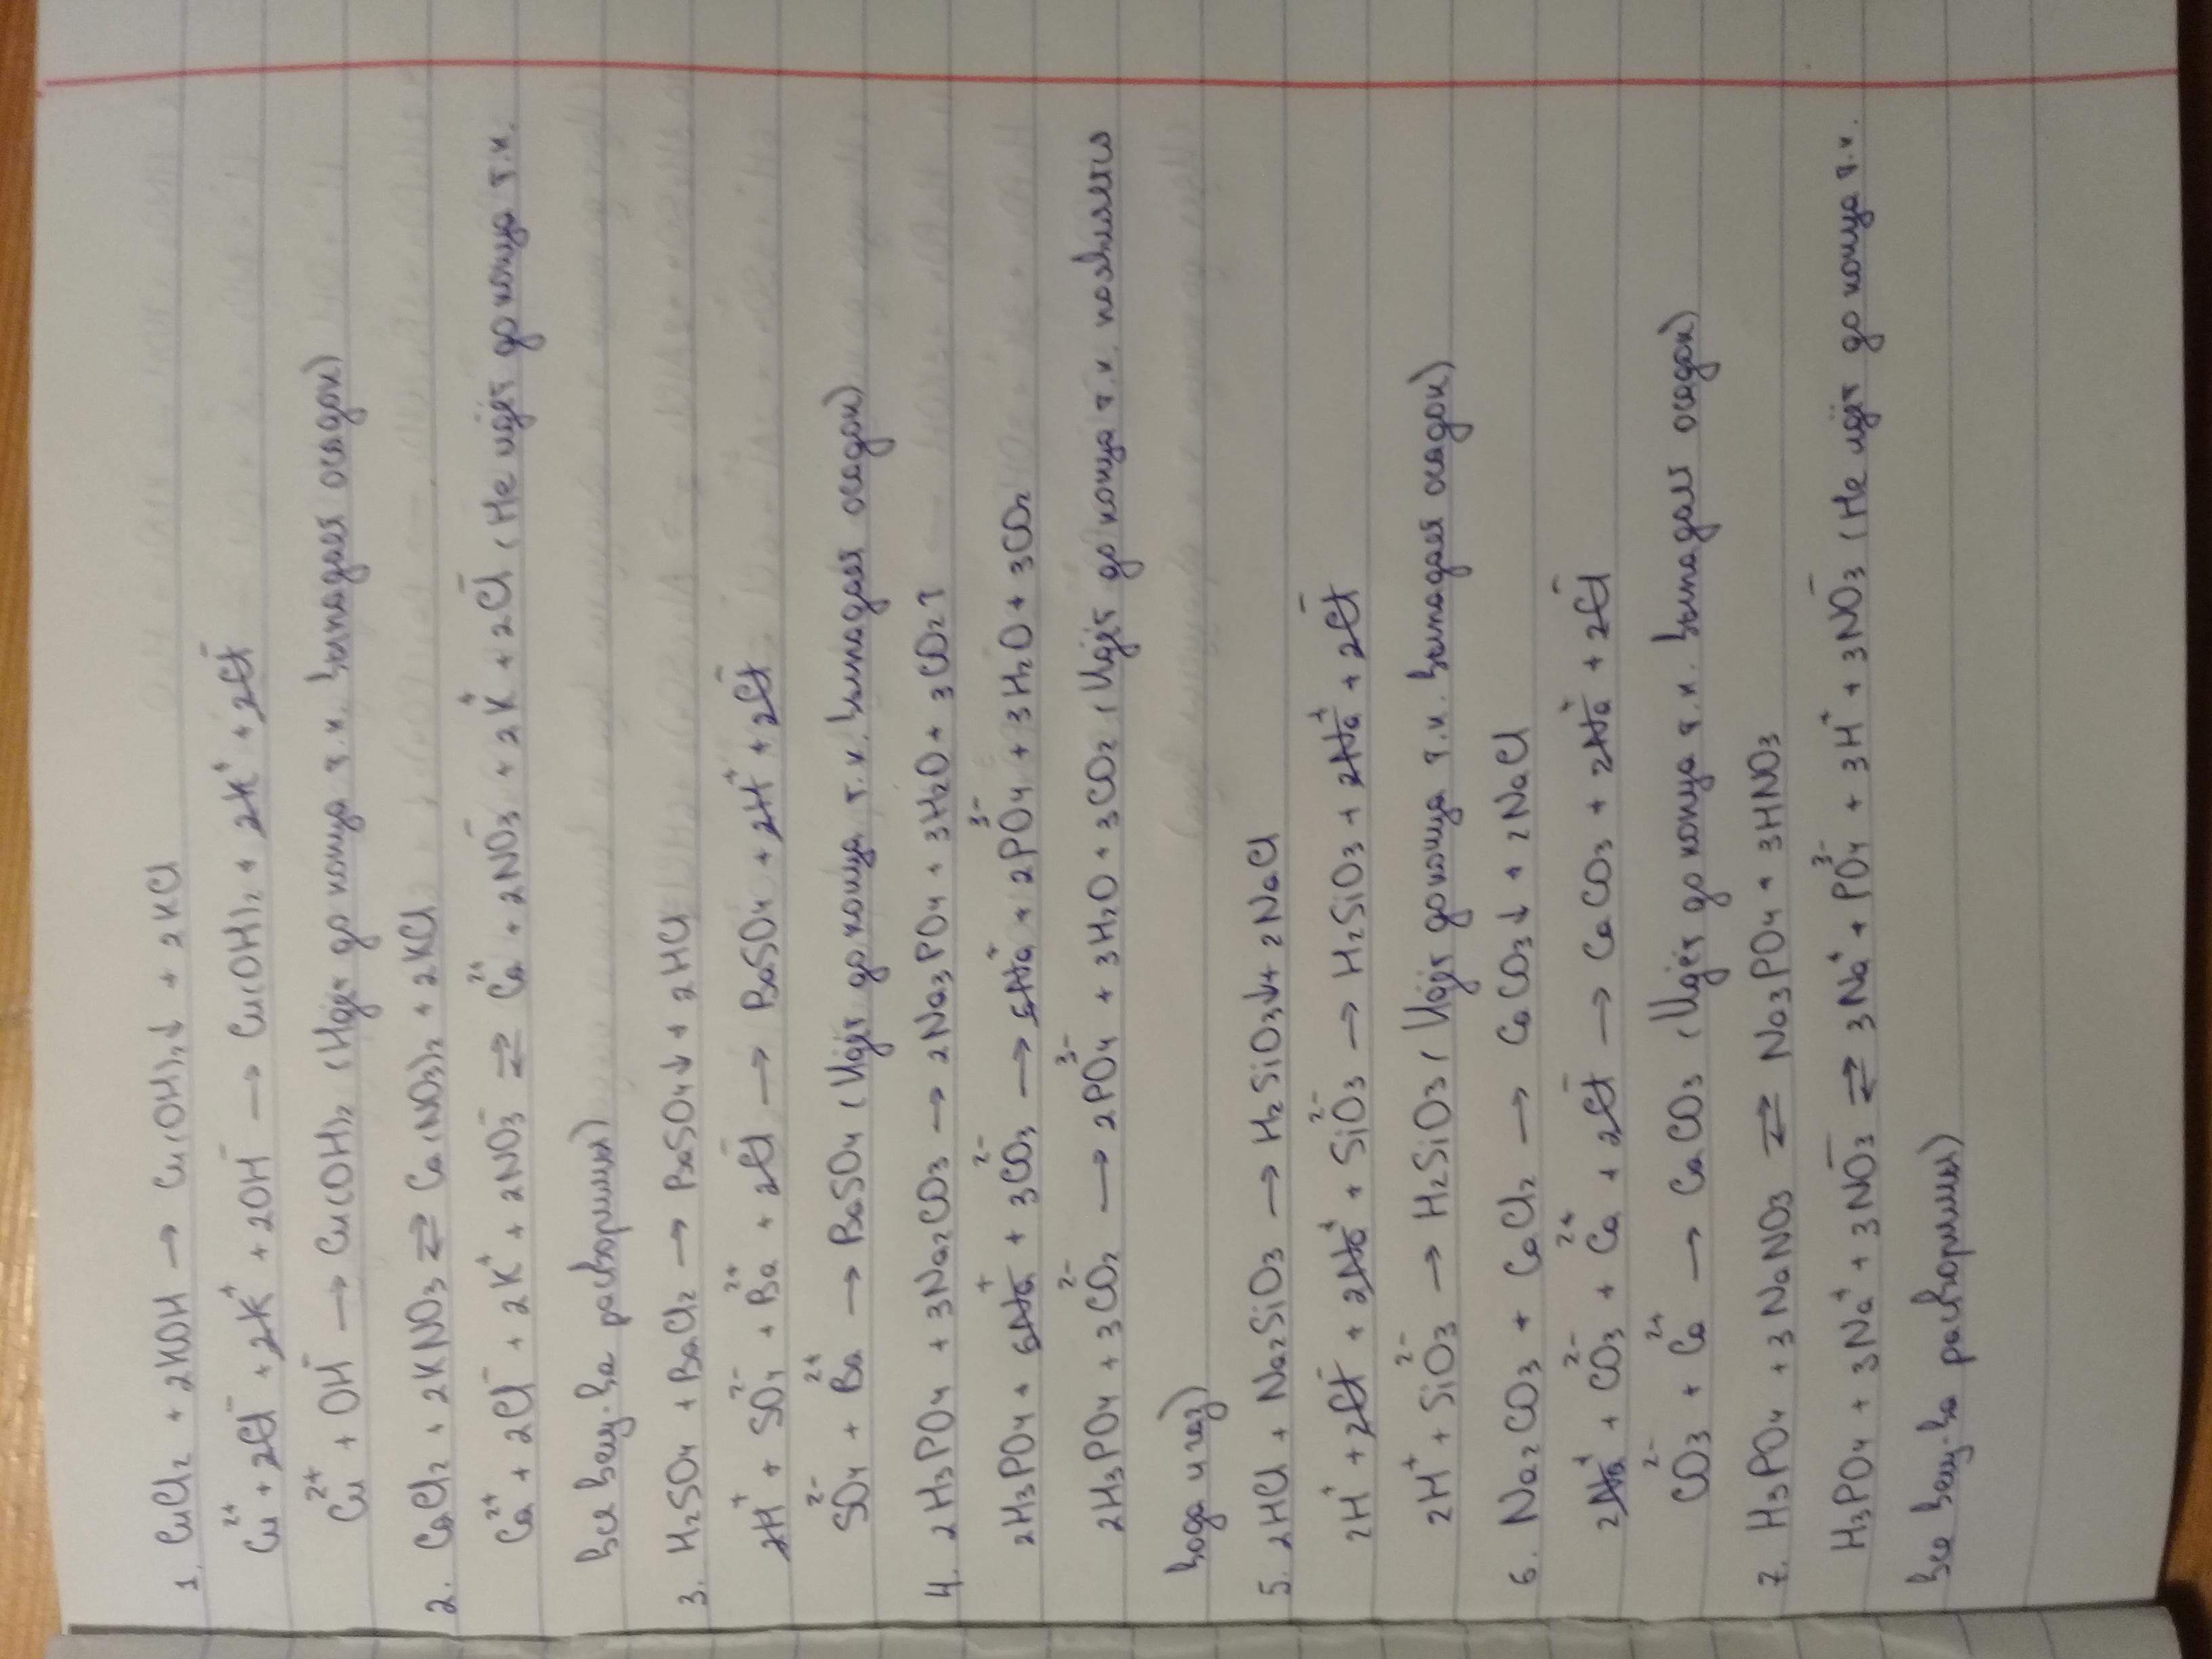 1. CuCl₂ + 2KOH → Cu(OH)₂↓ + 2KCl
Cu²⁺ + 2Cl⁻ + 2K⁺ + 2OH⁻ → Cu(OH)₂ + 2K⁺ + 2Cl⁻
Cu²⁺ + OH⁻ → Cu(OH)₂ (Идёт до конца т.к. выпадает осадок)
2. CaCl₂ + 2KNO₃ ⇄ Ca(NO₃)₂ + 2KCl
Ca²⁺ + 2Cl⁻ + 2K⁺ + 2NO₃⁻ ⇄ Ca²⁺ + 2NO₃⁻ + 2K⁺ + 2Cl⁻ (Не идёт до конца т.к.
все вещ-ва растворимы)
3. H₂SO₄ + BaCl₂ → BaSO₄↓ + 2HCl
2H⁺ + SO₄²⁻ + Ba²⁺ + 2Cl⁻ → BaSO₄ + 2H⁺ + 2Cl⁻
SO₄²⁻ + Ba²⁺ → BaSO₄ (Идёт до конца т.к. выпадает осадок)
4. 2H₃PO₄ + 3Na₂CO₃ → 2Na₃PO₄ + 3H₂O + 3CO₂↑
2H₃PO₄ + 6Na⁺ + 3CO₃²⁻ → 6Na⁺ + 2PO₄³⁻ + 3H₂O + 3CO₂
2H₃PO₄ + 3CO₂²⁻ → 2PO₄³⁻ + 3H₂O + 3CO₂ (Идёт до конца т.к. появляется
вода и газ)
5. 2HCl + Na₂SiO₃ → H₂SiO₃↓ + 2NaCl
2H⁺ + 2Cl⁻ + 2Na⁺ + SiO₃²⁻ → H₂SiO₃ + 2Na⁺ + 2Cl⁻
2H⁺ + SiO₃²⁻ → H₂SiO₃ (Идёт до конца т.к. выпадает осадок)
6. Na₂CO₃ + CaCl₂ → CaCO₃↓ + 2NaCl
2Na⁺ + CO₃²⁻ + Ca²⁺ + 2Cl⁻ → CaCO₃ + 2Na⁺ + 2Cl⁻
CO₃²⁻ + Ca²⁺ → CaCO₃ (Идёт до конца т.к. выпадает осадок)
7. H₃PO₄ + 3NaNO₃ ⇄ Na₃PO₄ + 3HNO₃
H₃PO₄ + 3Na⁺ + 3NO₃⁻ ⇄ 3Na⁺ + PO₄³⁻ + 3H⁺ + 3NO₃⁻ (Не идёт до конца т.к.
все вещ-ва растворимы)